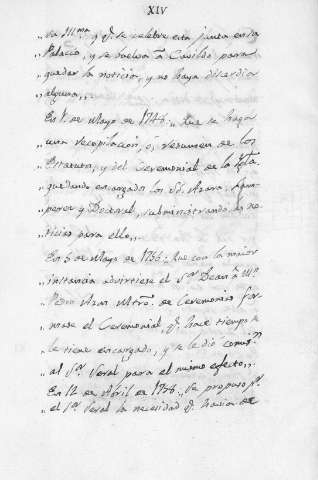 XIV
„ sa Ill.ma y q.e se celebre esta junta en su
„ Palacio, y se vuelva à Cavildo para
„ quedar la noticia, y no haya discordia
„ alguna „.
En 1 de Mayo de 1746 „ Que se haga
„ una recopilacion, ó resumen de los
„ Estatutos, y del Ceremonial de la Igla.
„ quedando encargados los Sr. Azara,
„ y Doctoral, subministrando la no
„ ticias para ello „.
En 5 de Mayo de 1756 „ Que con la maior
„ instancia advirtiese el S.or Dean à M.n
„ Pedro Azan Mtro. de Ceremonias for
„ mase el Ceremonial q.e hace tiempo se
„ le tiene encargado, y se le dió comis.n
„ al S.or Seral para el mismo efecto „.
„ En 12 de Abril de 1758 „ Se propuso p.r
„ el S.or Seral la necesidad q.e havia de